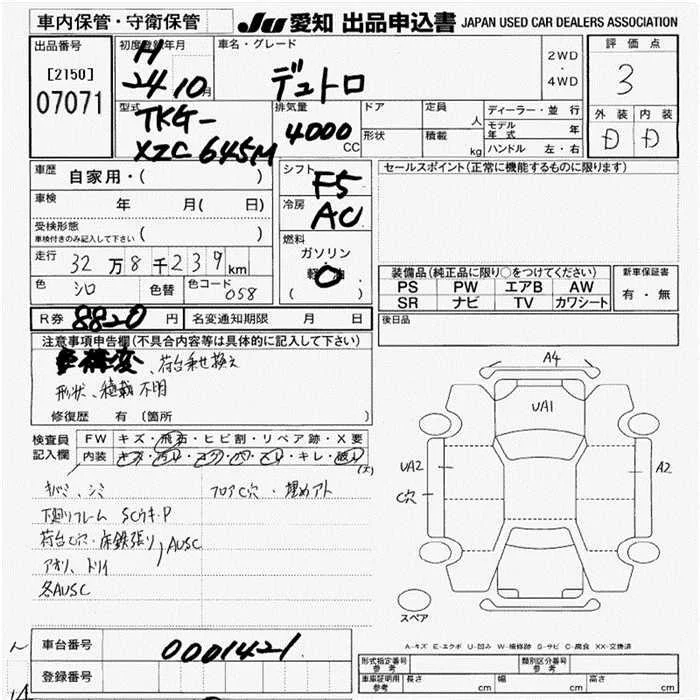 車内保管・守衛保管 JU 愛知 出品申込書 JAPAN USED CAR DEALERS ASSOCIATION
出品番号 [2150] 07071
初度登録年月 H 24 10月
車名・グレード デュトロ
2WD・4WD
評価点 3
外装 D 内装 D
型式 TKG-XZC645M
排気量 4000 CC
ドア 形状
定員 人 積載 kg
ディーラー・並行
モデル年式 年
ハンドル 左・右
車歴 自家用・( )
車検 年 月( 日)
受検形態 車検付きのみ記入して下さい ( )
走行 32万8千239km
色 シロ 色替 色コード 058
シフト F5
冷房 AC
燃料 ガソリン・軽油 ( )
セールスポイント(正常に機能するものに限ります)
装備品(純正品に限り○をつけてください)
PS PW エアB AW
SR ナビ TV カワシート
新車保証書 有・無
R券 8820円 名変通知期限 月 日
後日品
注意事項申告欄(不具合内容等は具体的に記入して下さい)
構変、荷台乗せ換え
形状、積載不明
修復歴 有 (箇所 )
検査員記入欄 FW キズ・飛石・ヒビ割・リペア跡・X要
内装 キズ・汚レ・コゲ・穴・スレ・キレ・破レ
キバミ、シミ フロアC穴・埋めアト
下廻リフレーム SCウキ・P
荷台C穴・床鉄張り
アオリ、トリイ AUSC
各AUSC
A4
UA1
UA2 A2
C穴
スペア
A-キズ E-エクボ U-凹み W-補修跡 S-サビ C-腐食 XX-交換済
車台番号 0001421
登録番号
型式指定番号 参考 類別区分番号 参考
車庫証明用 参考 長さ cm 幅 cm 高さ cm